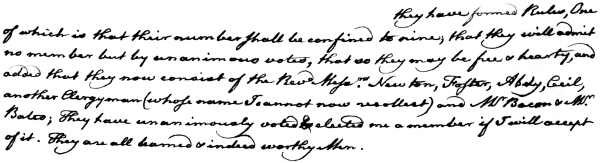 they have formed Rules, One
of which is that their number shall be confined to nine; that they will admit
no member but by unanimous votes, that so they may be free & hearty, and
added that they now consist of the Revd. Messrs. Newton, Foster, Abdy, Cecil,
another Clergyman (whose name I cannot now recollect) and Mr. Bacon & Mr.
Bates; They have unanimously voted & elected me a member if I will accept
of it. They are all learned & indeed worthy Men.